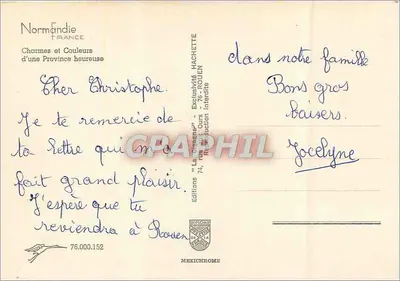 Normandie
FRANCE
Charmes et Couleurs
d'une Province heureuse
Cher Christophe.
Je te remercie de
ta lettre qui m'a
fait grand plaisir.
J'espère que tu
reviendra à Rouen
76.000.152
Editions "La - Exclusivité HACHETTE
74, rue Ours - 76 - ROUEN
Reproduction Interdite
MEXICHROME
dans notre famille
Bons gros
baisers.
Jocelyne
CARTGRAPHIL